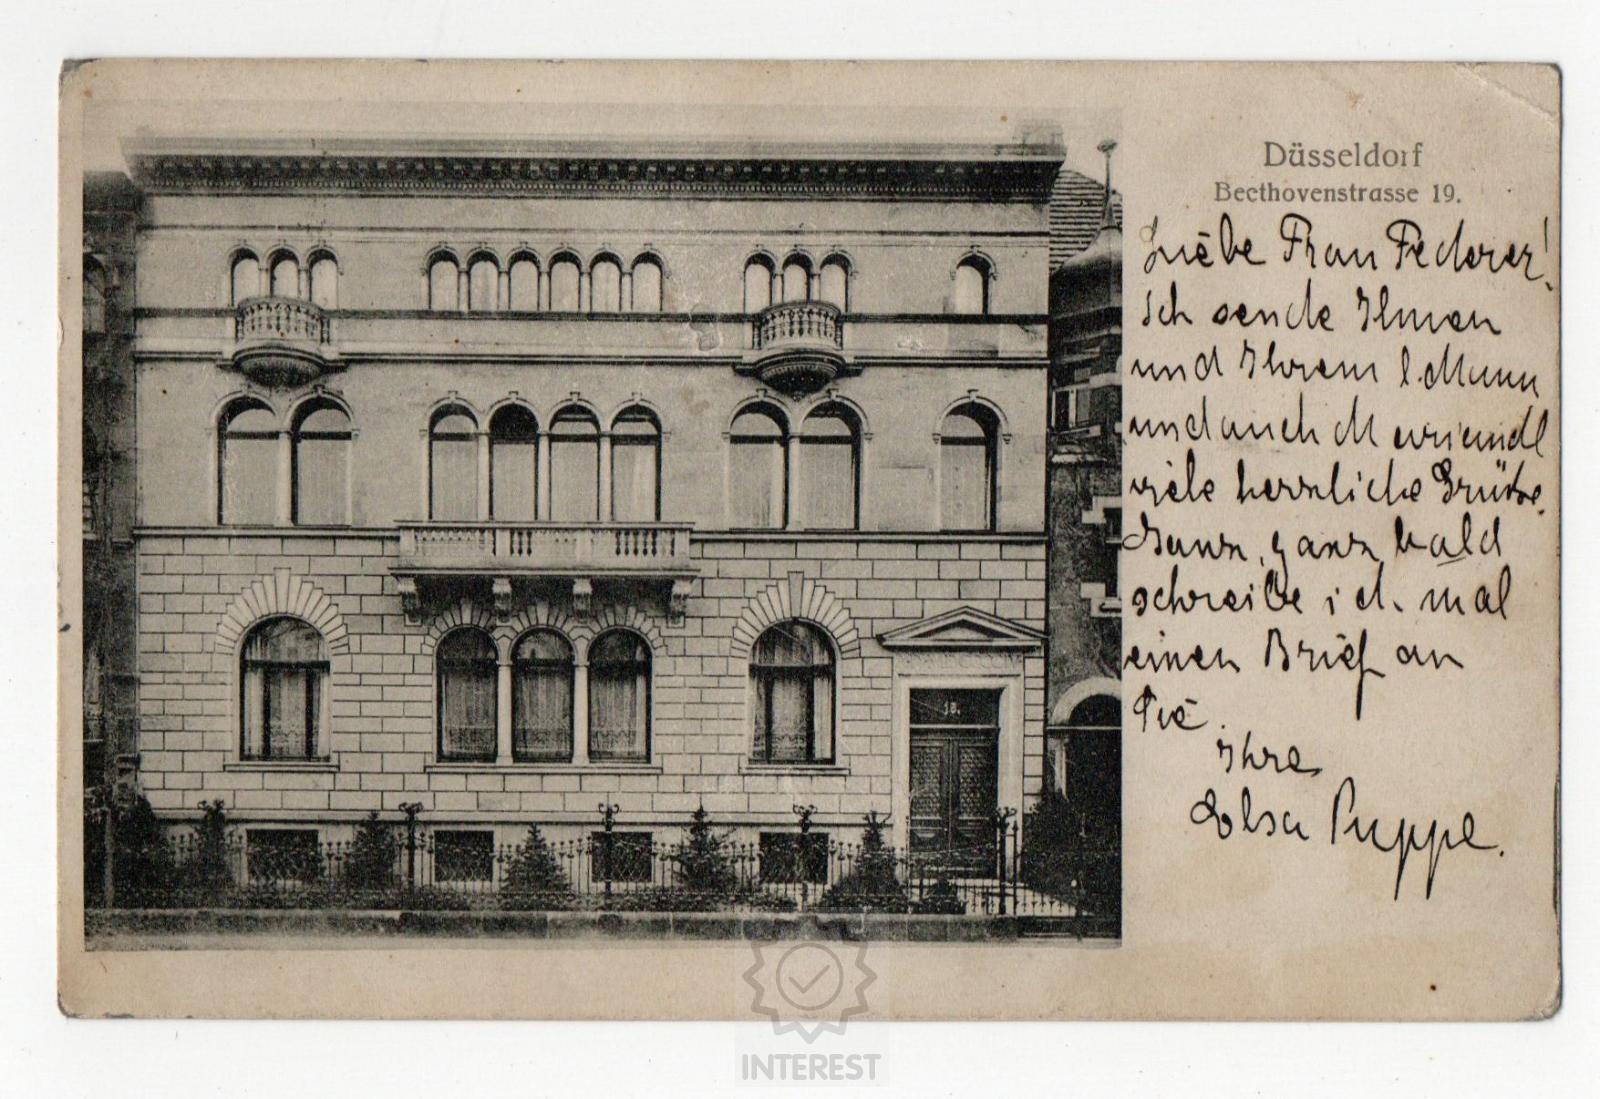 Düsseldorf
Beethovenstrasse 19.
Liebe Frau Federer!
Ich sende Ihnen
und Ihrem l. Mann
und auch
viele herzliche Grüsse.
Ganz, ganz bald
schreibe ich mal
einen Brief an
Sie.
Ihre
Elsa Puppe.
INTEREST